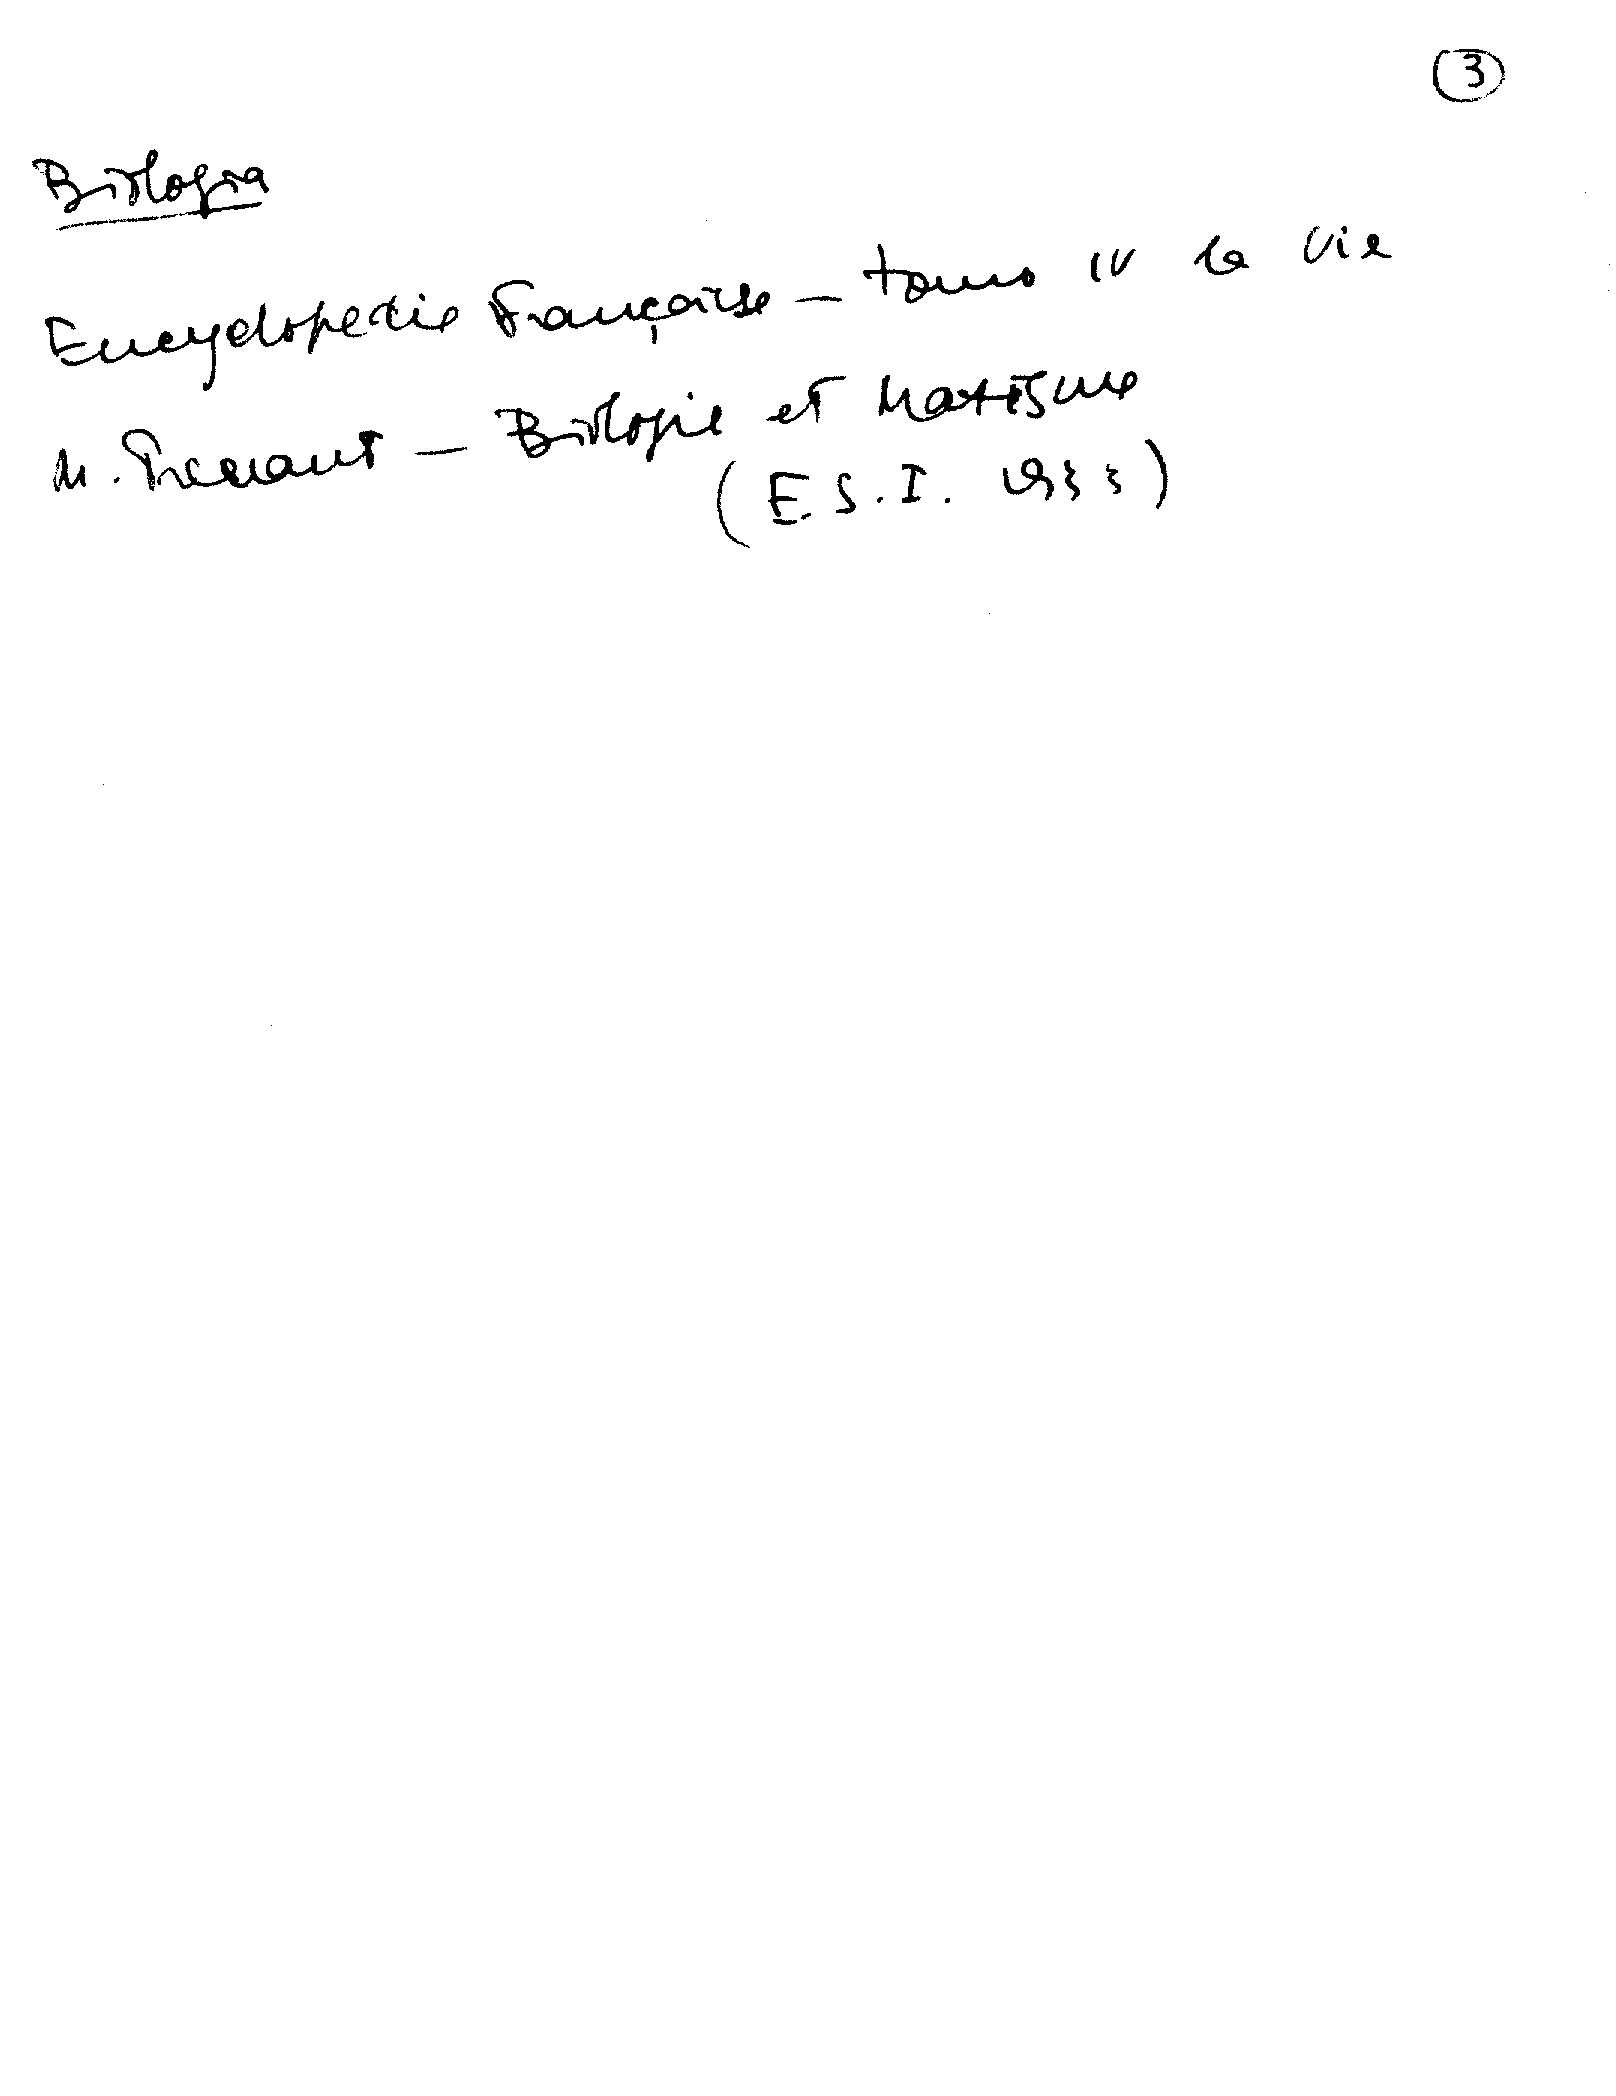 3
Biologia
Encyclopedie Française – tomo IV la Vie
M. Prenant – Biologie et Marxisme
(E.S.I. 1933)